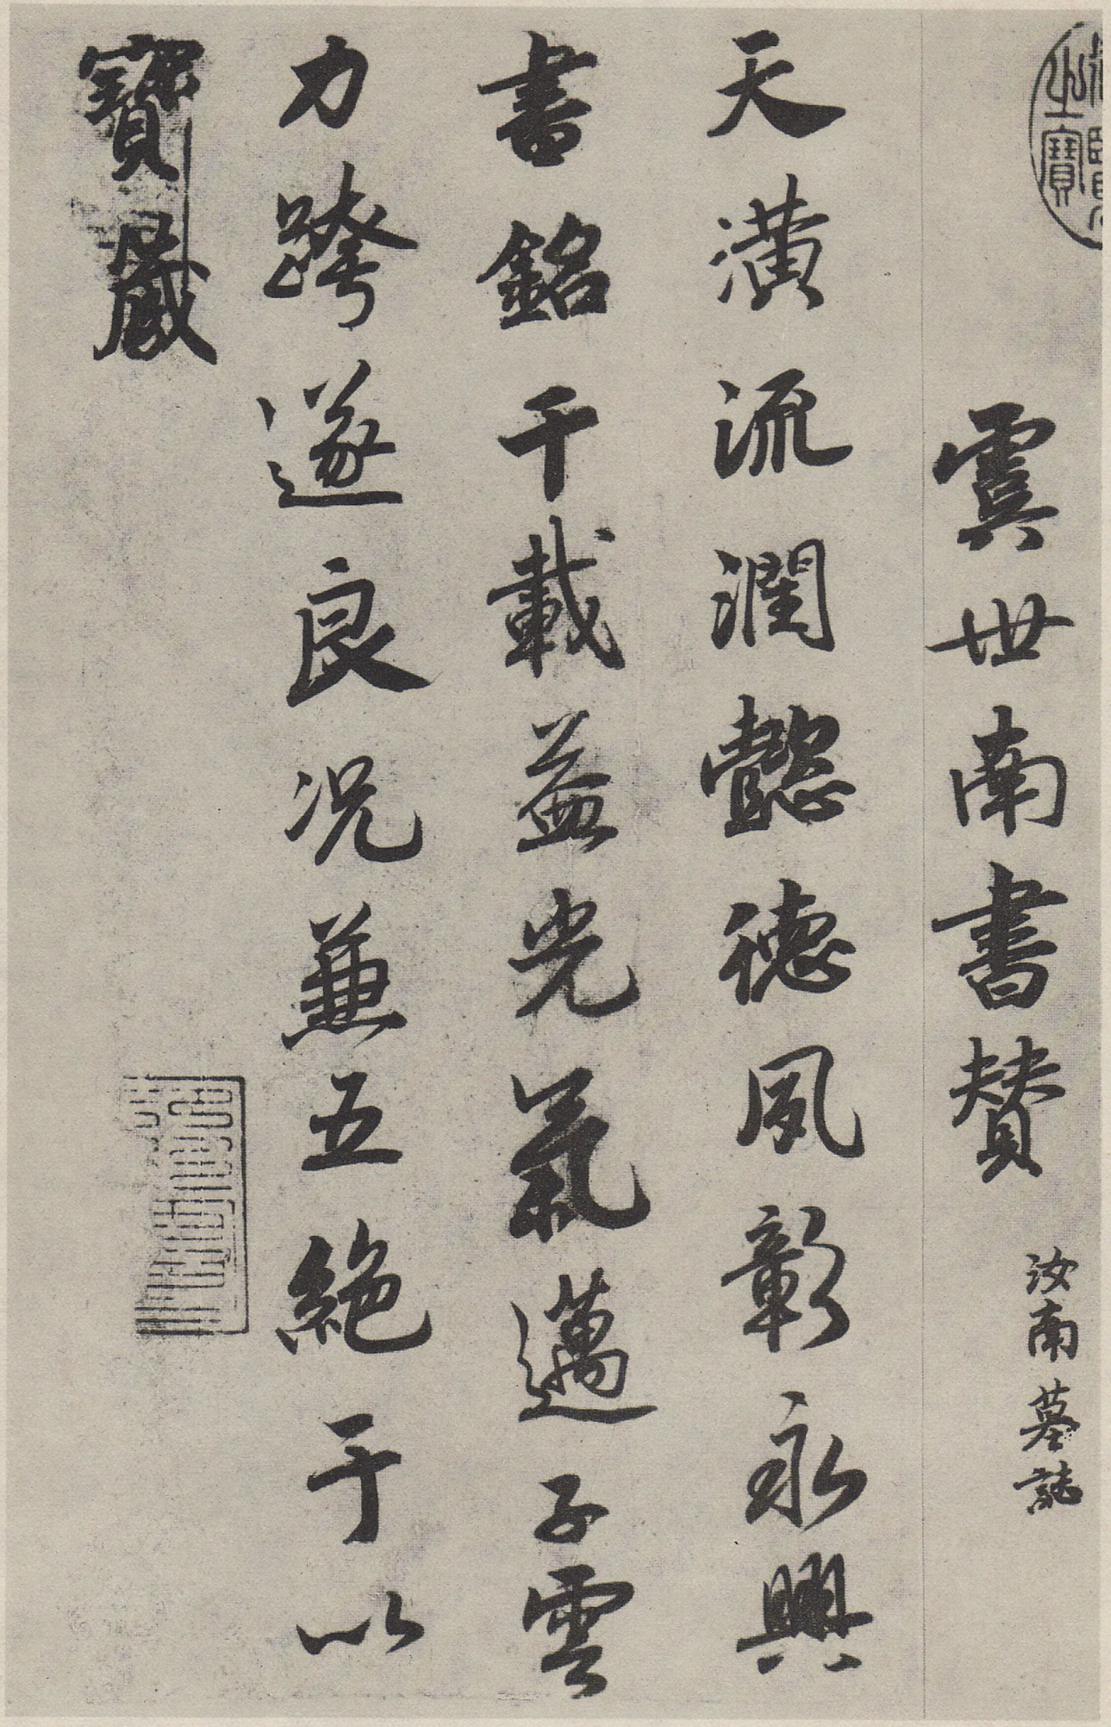 虞世南書賛 汝南墓誌
天潢流潤懿德夙彰永興
書銘千載益光氣邁子雲
力跨遂良况兼五絶于以
寶蔵
之寶